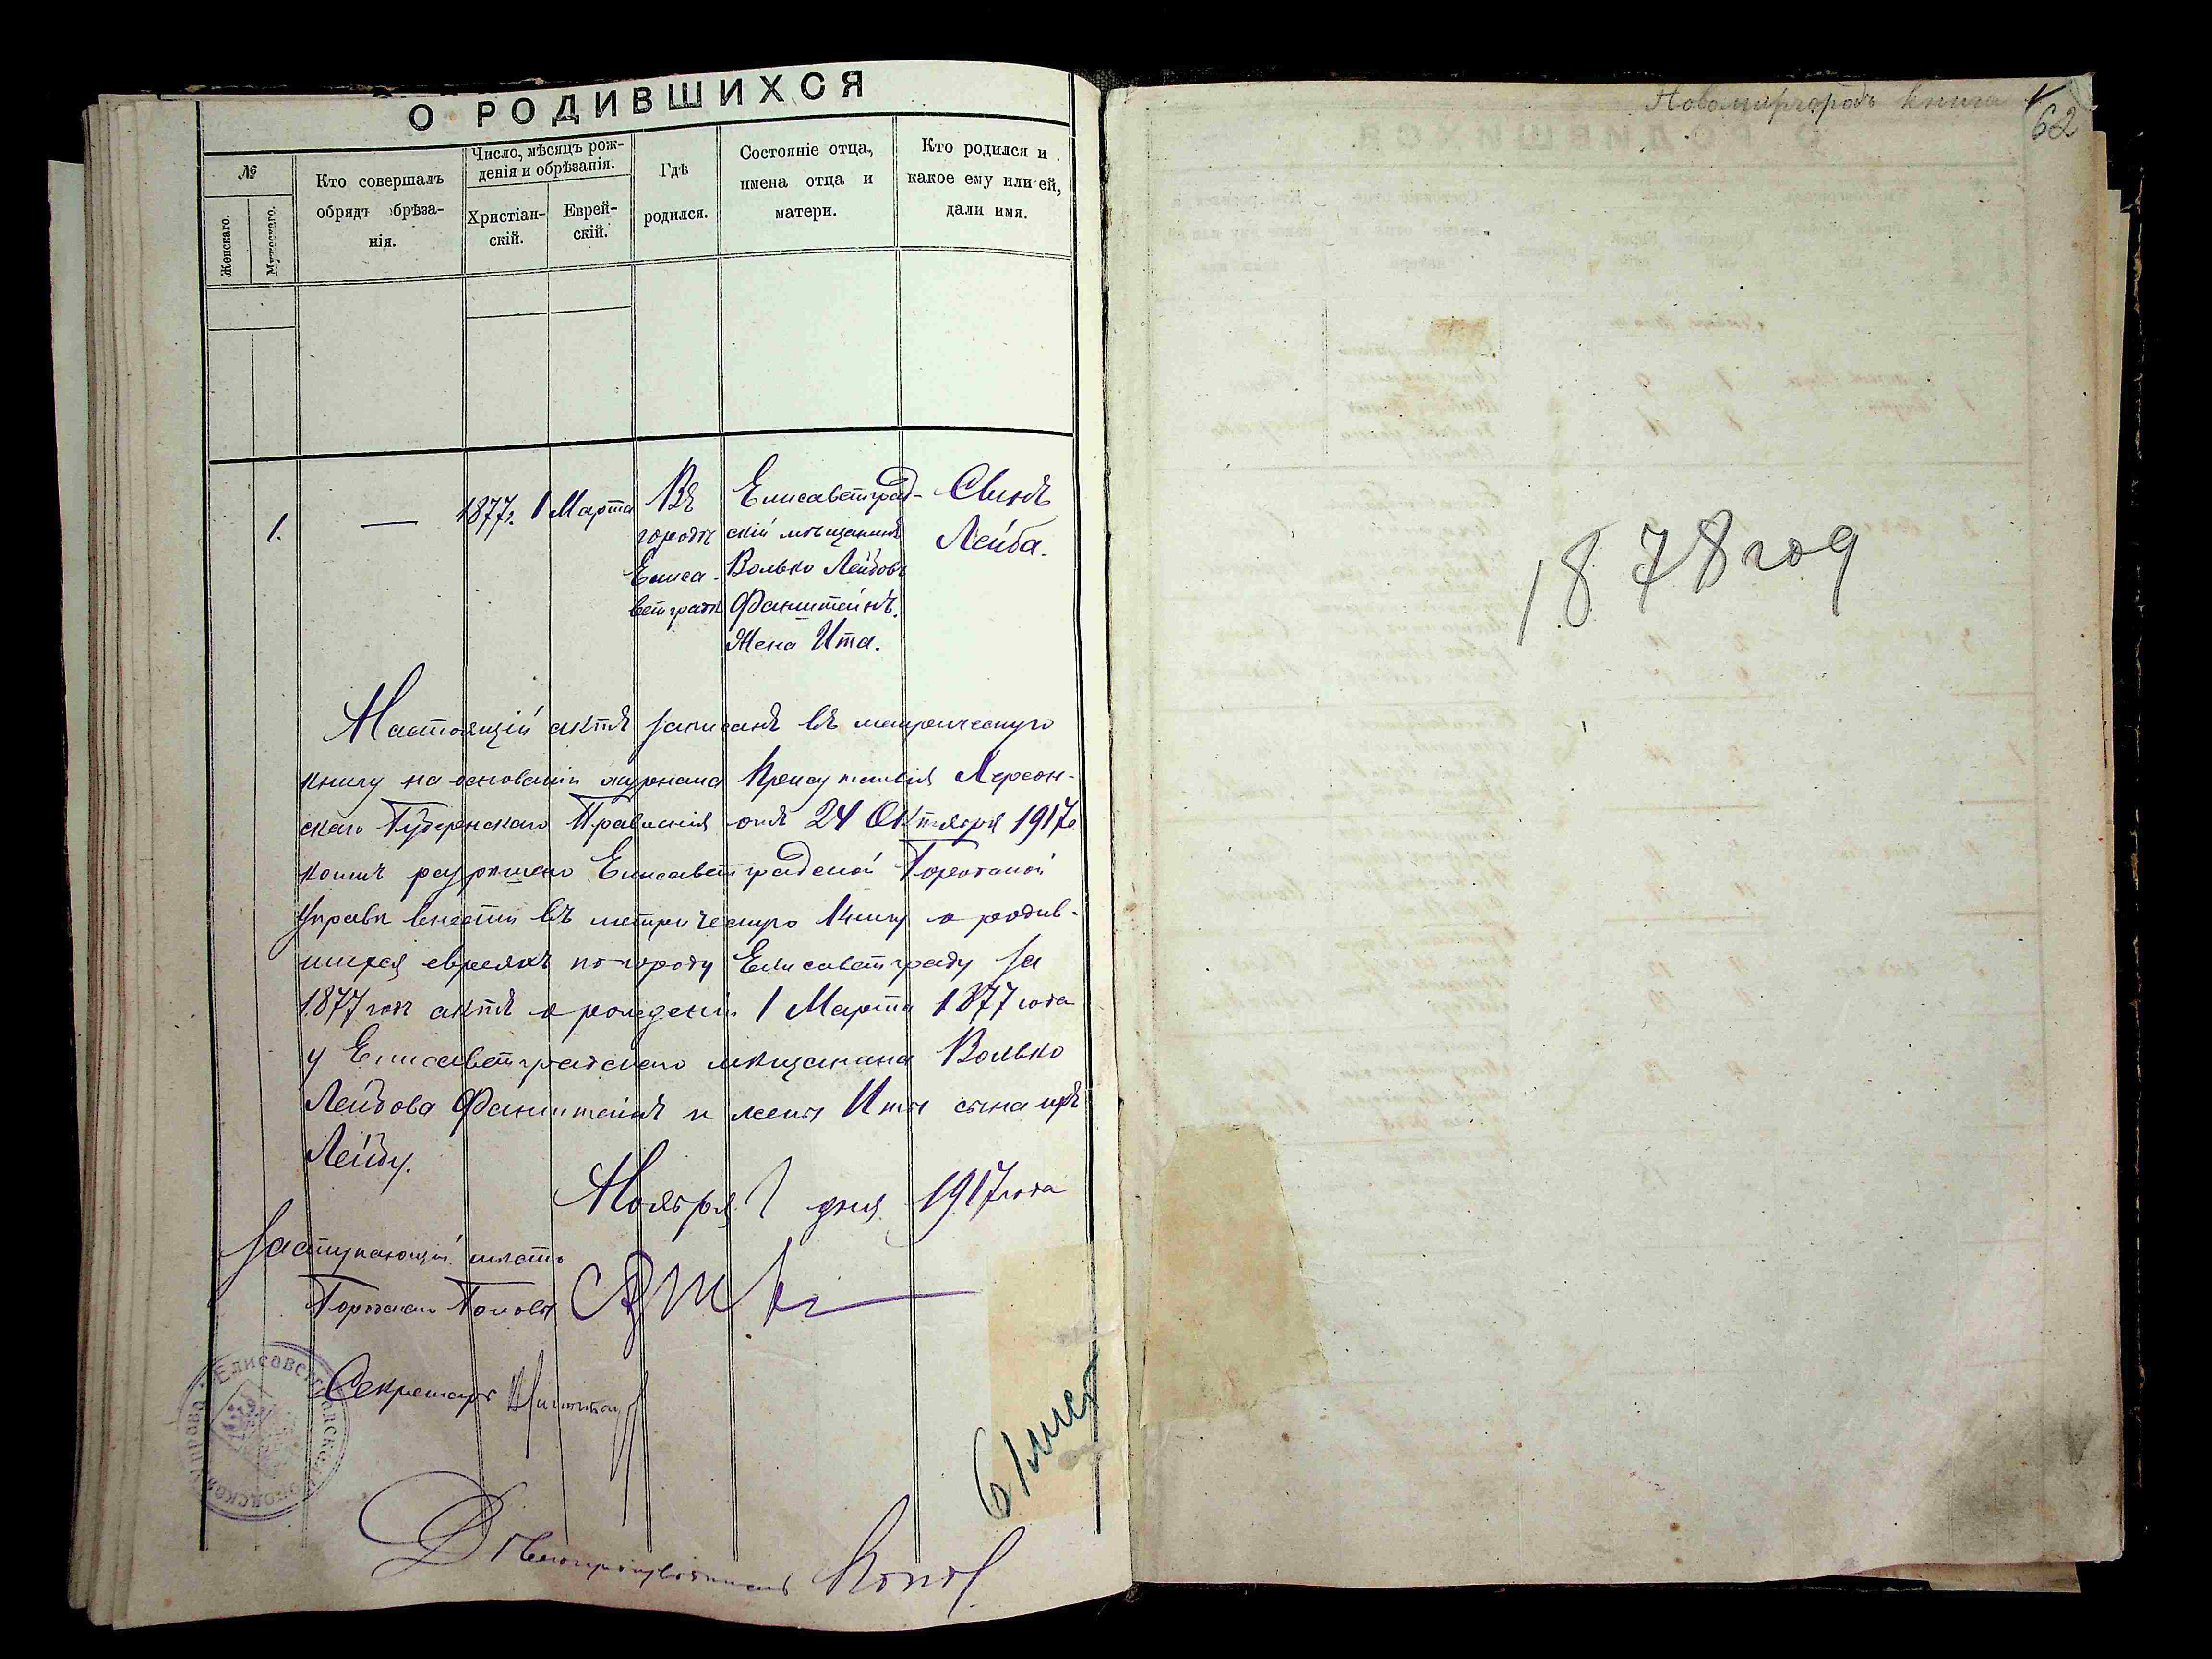 О РОДИВШИХСЯ
№
Женскаго.
Мужескаго.
Кто совершалъ
обрядъ обрѣза-
нія.
Число, мѣсяцъ рож-
денія и обрѣзанія.
Христіан-
скій.
Еврей-
скій.
Гдѣ
родился.
Состояніе отца,
имена отца и
матери.
Кто родился и
какое ему или ей,
дали имя.
1.
—
1877г. 1 Марта
Въ
городѣ
Елиса-
ветградѣ
Елисаветград-
скій мѣщанинъ
Волько Лейбовъ
Фанштейнъ.
Жена Ита.
Сынъ
Лейба.
Настоящій актъ записанъ въ метрическую
книгу на основаніи журнала Присутствія Херсон-
скаго Губернскаго Правленія отъ 24 Октября 1917г.
коимъ разрѣшено Елисаветградской Городской
Управѣ внести въ метрическую книгу о родив-
шихся евреяхъ по городу Елисаветграду за
1877 годъ актъ о рожденіи 1 Марта 1877 года
у Елисаветградскаго мѣщанина Волько
Лейбова Фанштейнъ и жены Иты сына
Лейбу.
Ноября 1 дня 1917 года
Заступающій мѣсто
Городского Головы
Секретарь
Елисаветградская Городская Управа
Дѣлопроизводитель
61 лист
Новомиргородъ книга
62
1878 год